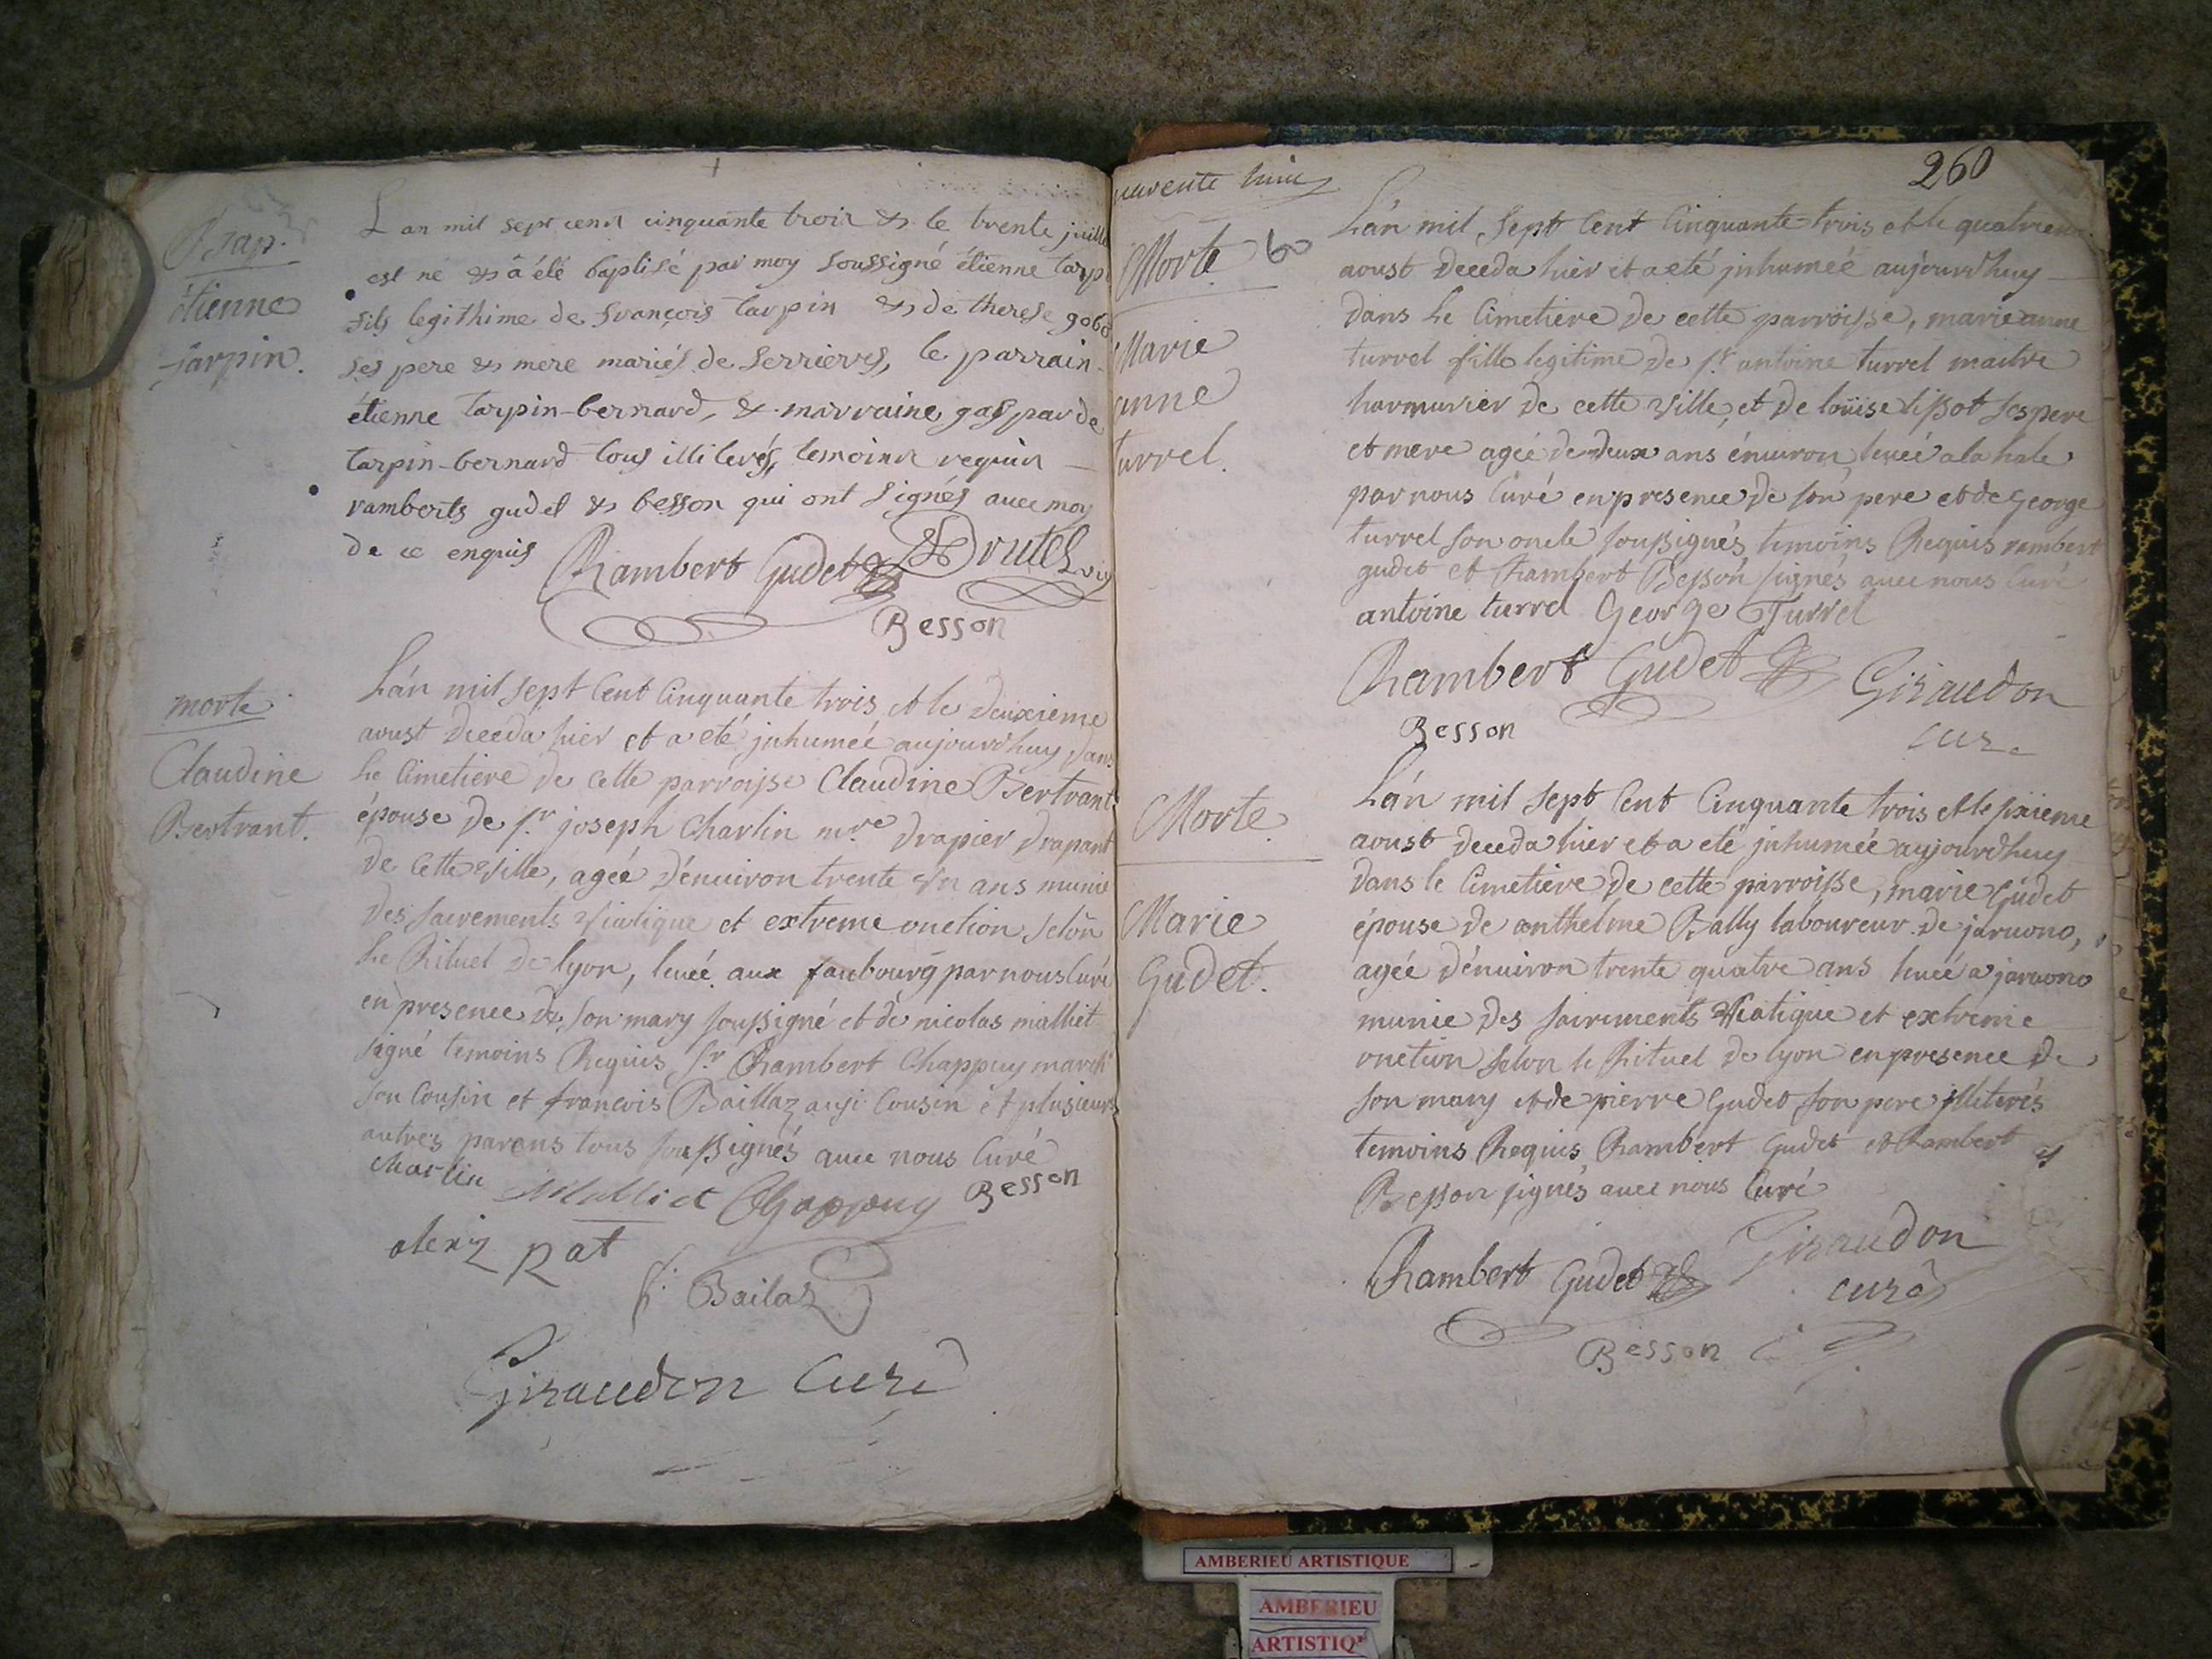 Bap.
étienne
tarpin.
L an mil sept cent cinquante trois & le trente juillet
est né & a été baptisé par moy soussigné étienne tarpi
fils legithime de françois tarpin & de therese gobe
ses pere & mere mariés de serrieres, le parrain
étienne tarpin-bernard, & marraine gasparde
tarpin-bernard tous illiterés, temoins requis
ramberts gudet & besson qui ont signés avec moy
de ce enquis
Rambert Gudet Drutel vic
Besson
morte
Claudine
Bertrant.
L'an mil sept Cent Cinquante trois et le deuxieme
aoust deceda hier et a eté inhumeé aujourdhuy dans
le Cimetiere de cette parroisse Claudine Bertrant
épouse de sr joseph Charlin mre drapier drapant
de cette ville, ageé d'enuiron trente un ans munie
des sacrements viatique et extreme onction selon
le Rituel de lyon, leueé aux faubourg par nous Curé
en presence de son mary soussigné et de nicolas malliet
signé temoins Requis sr Rambert Chappuy march
son Cousin et francois Baillaz aussi Cousin et plusieurs
autres parans tous soussignés auec nous Curé
Charlin Malliet Chappuy Besson
alexiz Rat
f. Bailaz
Giraudon Curé
quarente huit
260
60
Morte
Marie
anne
turrel.
L'an mil sept Cent Cinquante-trois et le quatrieme
aoust deceda hier et a eté inhumeé aujourdhuy
dans le Cimetiere de cette parroisse, marie anne
turrel fille legitime de sr antoine turrel maitre
harmurier de cette ville, et de loüise lissot ses pere
et mere ageé de deux ans énuiron leueé a la hale
par nous Curé en presence de son pere et de George
turrel son oncle soussignés temoins Requis rambert
gudet et Rambert Besson signés auec nous Curé
antoine turrel George Turrel
Rambert Gudet Giraudon
Besson cure
Morte
Marie
Gudet.
L'an mil sept Cent Cinquante trois et le sixieme
aoust deceda hier et a eté inhumée aujourdhuy
dans le Cimetiere de cette parroisse, marie Gudet
épouse de anthelme Bally laboureur de jaruono,
agée d'enuiron trente quatre ans leueé a jaruono
munie des sacrements Viatique et extreme
onction selon le Rituel de lyon en presence de
son mary et de pierre Gudet son pere illiterés
temoins Requis Rambert Gudet et Rambert
Besson signés auec nous Curé
Rambert Gudet Giraudon
curé
Besson
AMBERIEU ARTISTIQUE
AMBERIEU
ARTISTIQ